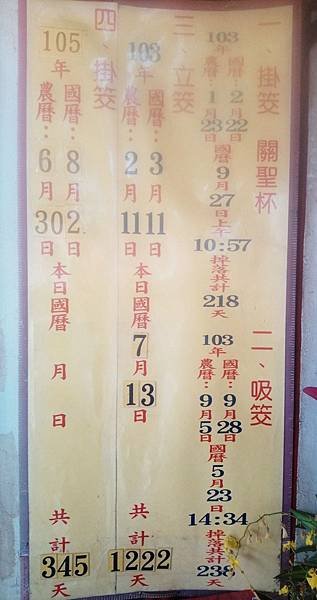 一、掛筊 關聖杯
103年
國曆：2月22日
農曆：1月23日
國曆9月27日上午10:57掉落共計218天
二、吸筊
103年
國曆：9月28日
農曆：9月5日
國曆5月23日14:34掉落共計238天
三、立筊
103年
國曆：3月11日
農曆：2月11日
本日國曆7月13日
共計1222天
四、掛筊
105年
國曆：8月2日
農曆：6月30日
本日國曆 月 日
共計345天